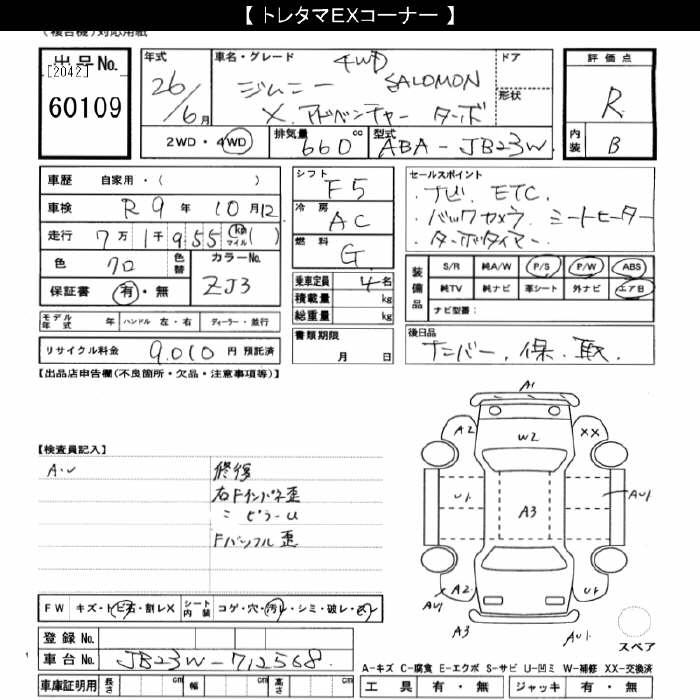 【 トレタマEXコーナー 】
(複合機)対応用紙
出品No.
[2042]
60109
年式
26/6月
車名・グレード
4WD
ジムニー SALOMON
X. アドベンチャー ターボ
ドア
形状
評価点
R
内装
B
2WD・4WD
排気量
660 cc
型式
ABA-JB23W
車歴 自家用・( )
車検 R9年10月12
走行 7万1千955 km マイル ( )
色 クロ 色替
カラーNo.
ZJ3
保証書 有・無
モデル年式 年 ハンドル 左・右 ディーラー・並行
リサイクル料金 9,010 円 預託済
シフト
F5
冷房
AC
燃料
G
乗車定員 4名
積載量 kg
総重量 kg
書類期限
月 日
セールスポイント
・ナビ ETC.
・バックカメラ. シートヒーター
・ターボタイマー.
装備品
S/R 純A/W P/S P/W ABS
純TV 純ナビ 革シート 外ナビ エアB
ナビ型番:
後日品
ナンバー, 保, 取.
【出品店申告欄(不良箇所・欠品・注意事項等)】
【検査員記入】
A・U
修復
右Fインパネ歪
〃 ピラーU
Fバッフル歪
A1
A2
XX
W2
U1
A3
AU1
A2
AU1
U1
A3
AU1
スペア
FW キズ・トビ石・割レX シート内装 コゲ・穴・汚レ・シミ・破レ・スレ
登録No.
車台No. JB23W-712568
車庫証明用 長さ cm 幅 cm 高さ cm
A-キズ C-腐食 E-エクボ S-サビ U-凹ミ W-補修 XX-交換済
工具 有・無 ジャッキ 有・無